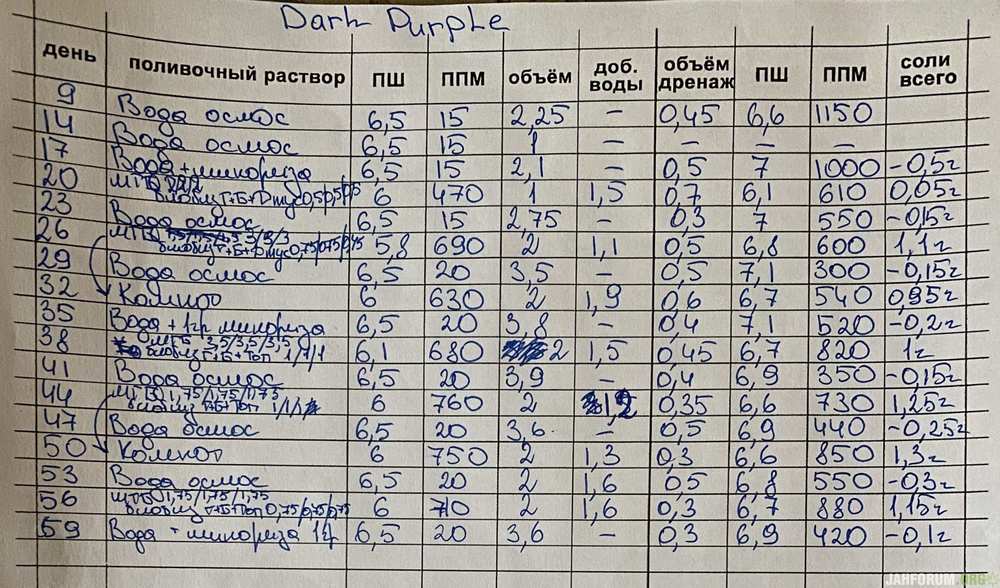 Dark Purple
день поливочный раствор ПШ ППМ объём доб. воды объём дренаж ПШ ППМ соли всего
9 Вода осмос 6,5 15 2,25 – 0,45 6,6 1150
14 Вода осмос 6,5 15 1 – – – –
17 Вода + микориза 6,5 15 2,1 – 0,5 7 1000 -0,5г
20 6 470 1 1,5 0,7 6,1 610 0,05г
23 Вода осмос 6,5 15 2,75 – 0,3 7 550 -0,15г
26 5,8 690 2 1,1 0,5 6,8 600 1,1г
29 Вода осмос 6,5 20 3,5 – 0,5 7,1 300 -0,15г
32 Компот 6 630 2 1,9 0,6 6,7 540 0,95г
35 Вода + 1гр микориза 6,5 20 3,8 – 0,4 7,1 520 -0,2г
38 3,5/3,5/3,5 1/1/1 6,1 680 2 1,5 0,45 6,7 820 1г
41 Вода осмос 6,5 20 3,9 – 0,4 6,9 350 -0,15г
44 1,75/1,75/1,75 6 760 2 0,35 6,6 730 1,25г
47 Вода осмос 6,5 20 3,6 – 0,5 6,9 440 -0,25г
50 Компот 6 750 2 1,3 0,3 6,6 850 1,3г
53 Вода осмос 6,5 20 2 1,6 0,5 6,8 550 -0,3г
56 1,75/1,75/1,75 0,75/0,75/0,75 6 2 1,6 0,3 6,7 880 1,15г
59 Вода + микориза 1гр 6,5 20 3,6 – 0,3 6,9 420 -0,1г
JAHFORUM.ORG